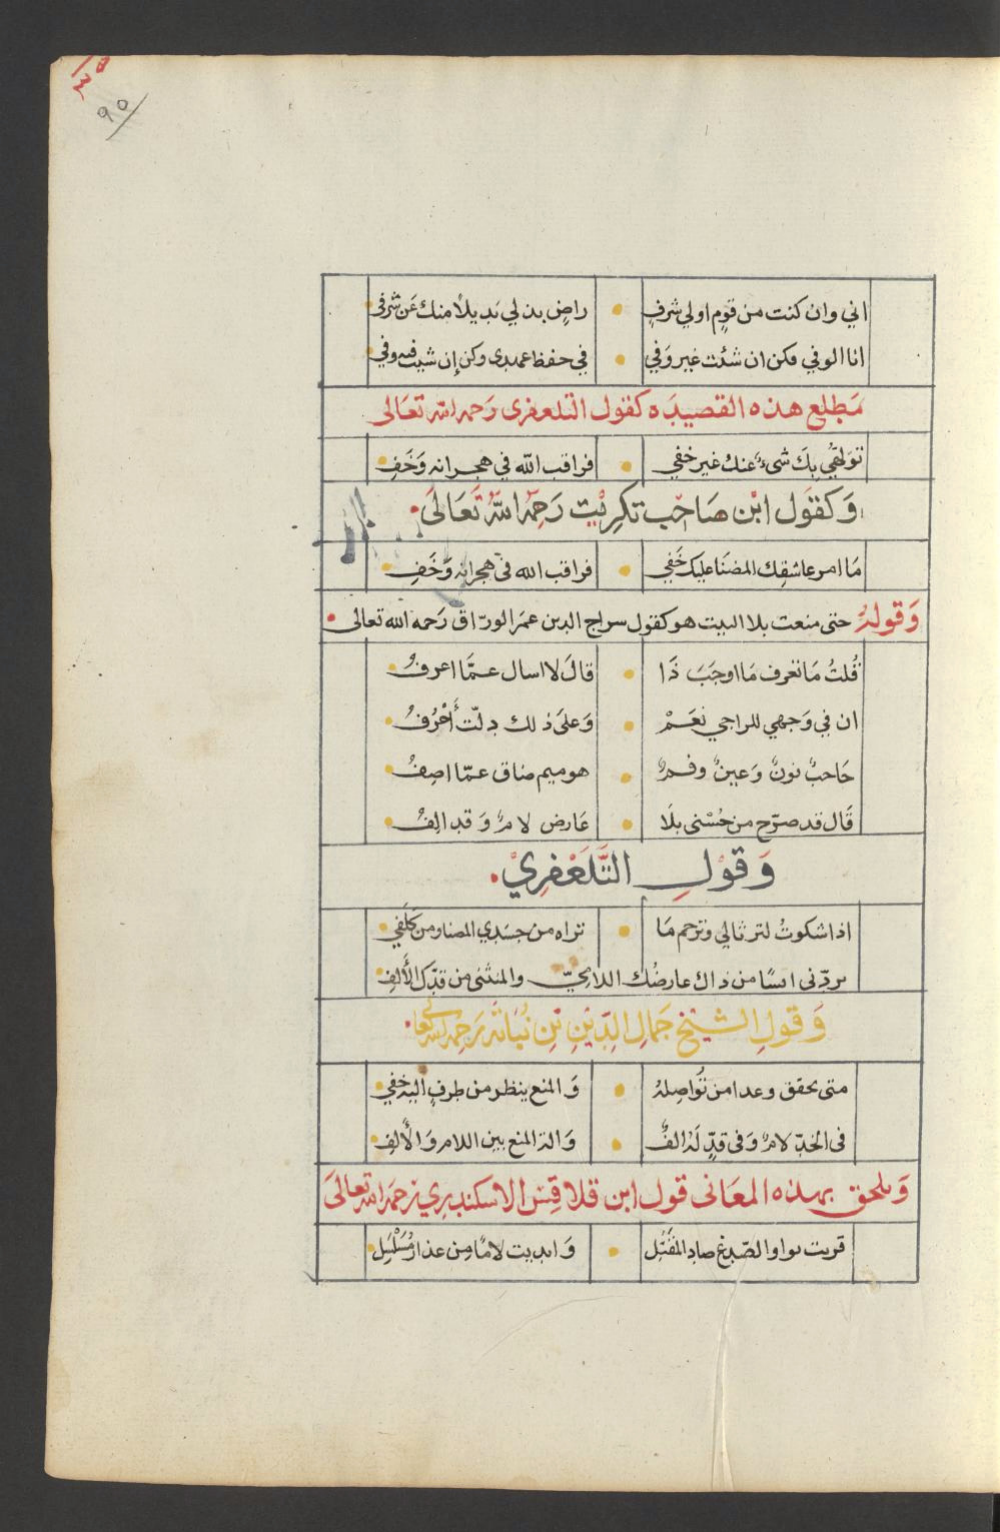 ٩٥
اني وان كنت من قومٍ اولي شرفٍ • راضٍ بذلي بديلًا منك عَن شرفي
انا الوفي فكن ان شئت غير وَفي • في حفظ عهدى وكن إن شيت فيه وفي
مَطلع هذه القصيدَه كقول التلعفرى رَحمه الله تعَالى
تولهي بكَ شىءٌ عنكَ غير خفي • فراقب الله في هجرانه وَخَفِ
وَكقوَل ابْن صَاحب تكرِيْت رَحِمَهُ اللّه تَعَالَى •
مَا امر عاشقِك المضنَا عليك خَفِي • فراقب الله فى هجرانه وَخَفِ
وَقولهُ حتى منعت بلا البيت هو كقول سراج الدين عمَر الورّاق رَحمه الله تعالى •
قُلتُ مَا تعرف مَا اوجَبَ ذَا • قالَ لا اسال عمَّا اعرفُ
ان فى وَجهي للراجي نَعَمْ • وَعلَى ذلك دلّت أَحْرُفُ
حَاحبٌ نونٌ وَعينٌ وفمٌ • هو ميم ضاق عمّا اصِفُ
قَال قد صرّح من حُسْنى بلَا • عَارض لامٌ وَقد الِفُ
وَقوْلِ التَّلَعْفِرِيْ •
اذا شكوتُ لترثالي وترحم مَا • تراه من جسَدي المضنا ومن كَلَفي
يردّنى اٮسًا من ذاك عارضُك اللامِيّ والمنثنى من قدّك الأَلفِ
وَقوَلِ الشيْخ جَمالِ الدِّيْنِ بْن نُبَاتَه رَحِمَه الله تعا •
متى يحقق وعدا من تَواصِلهُ • وَالمنع ينظر من طرفٍ اليه خفي
فى الخدّ لامٌ وَفى قدٍّ لَهُ الفٌ • وَالة المنع بين اللام وَالألِفِ
وَيلحق بهذه المعَانى قول ابن قلاقِسْ الاسكندِرِي رَحمَه الله تعالىَ
قرنت بواو الصّدغ صاد المقَبّل • وَابديت لامًا من عذارٍ مُسَلْسَلِ